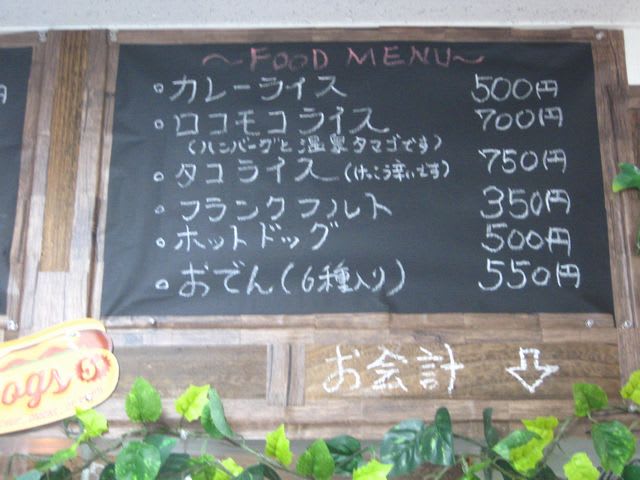 ~FOOD MENU~
・カレーライス 500円
・ロコモコライス 700円
(ハンバーグと温泉タマゴです)
・タコライス(けっこう辛いです) 750円
・フランクフルト 350円
・ホットドッグ 500円
・おでん(6種入り) 550円
お会計 ⇩
ogs
円